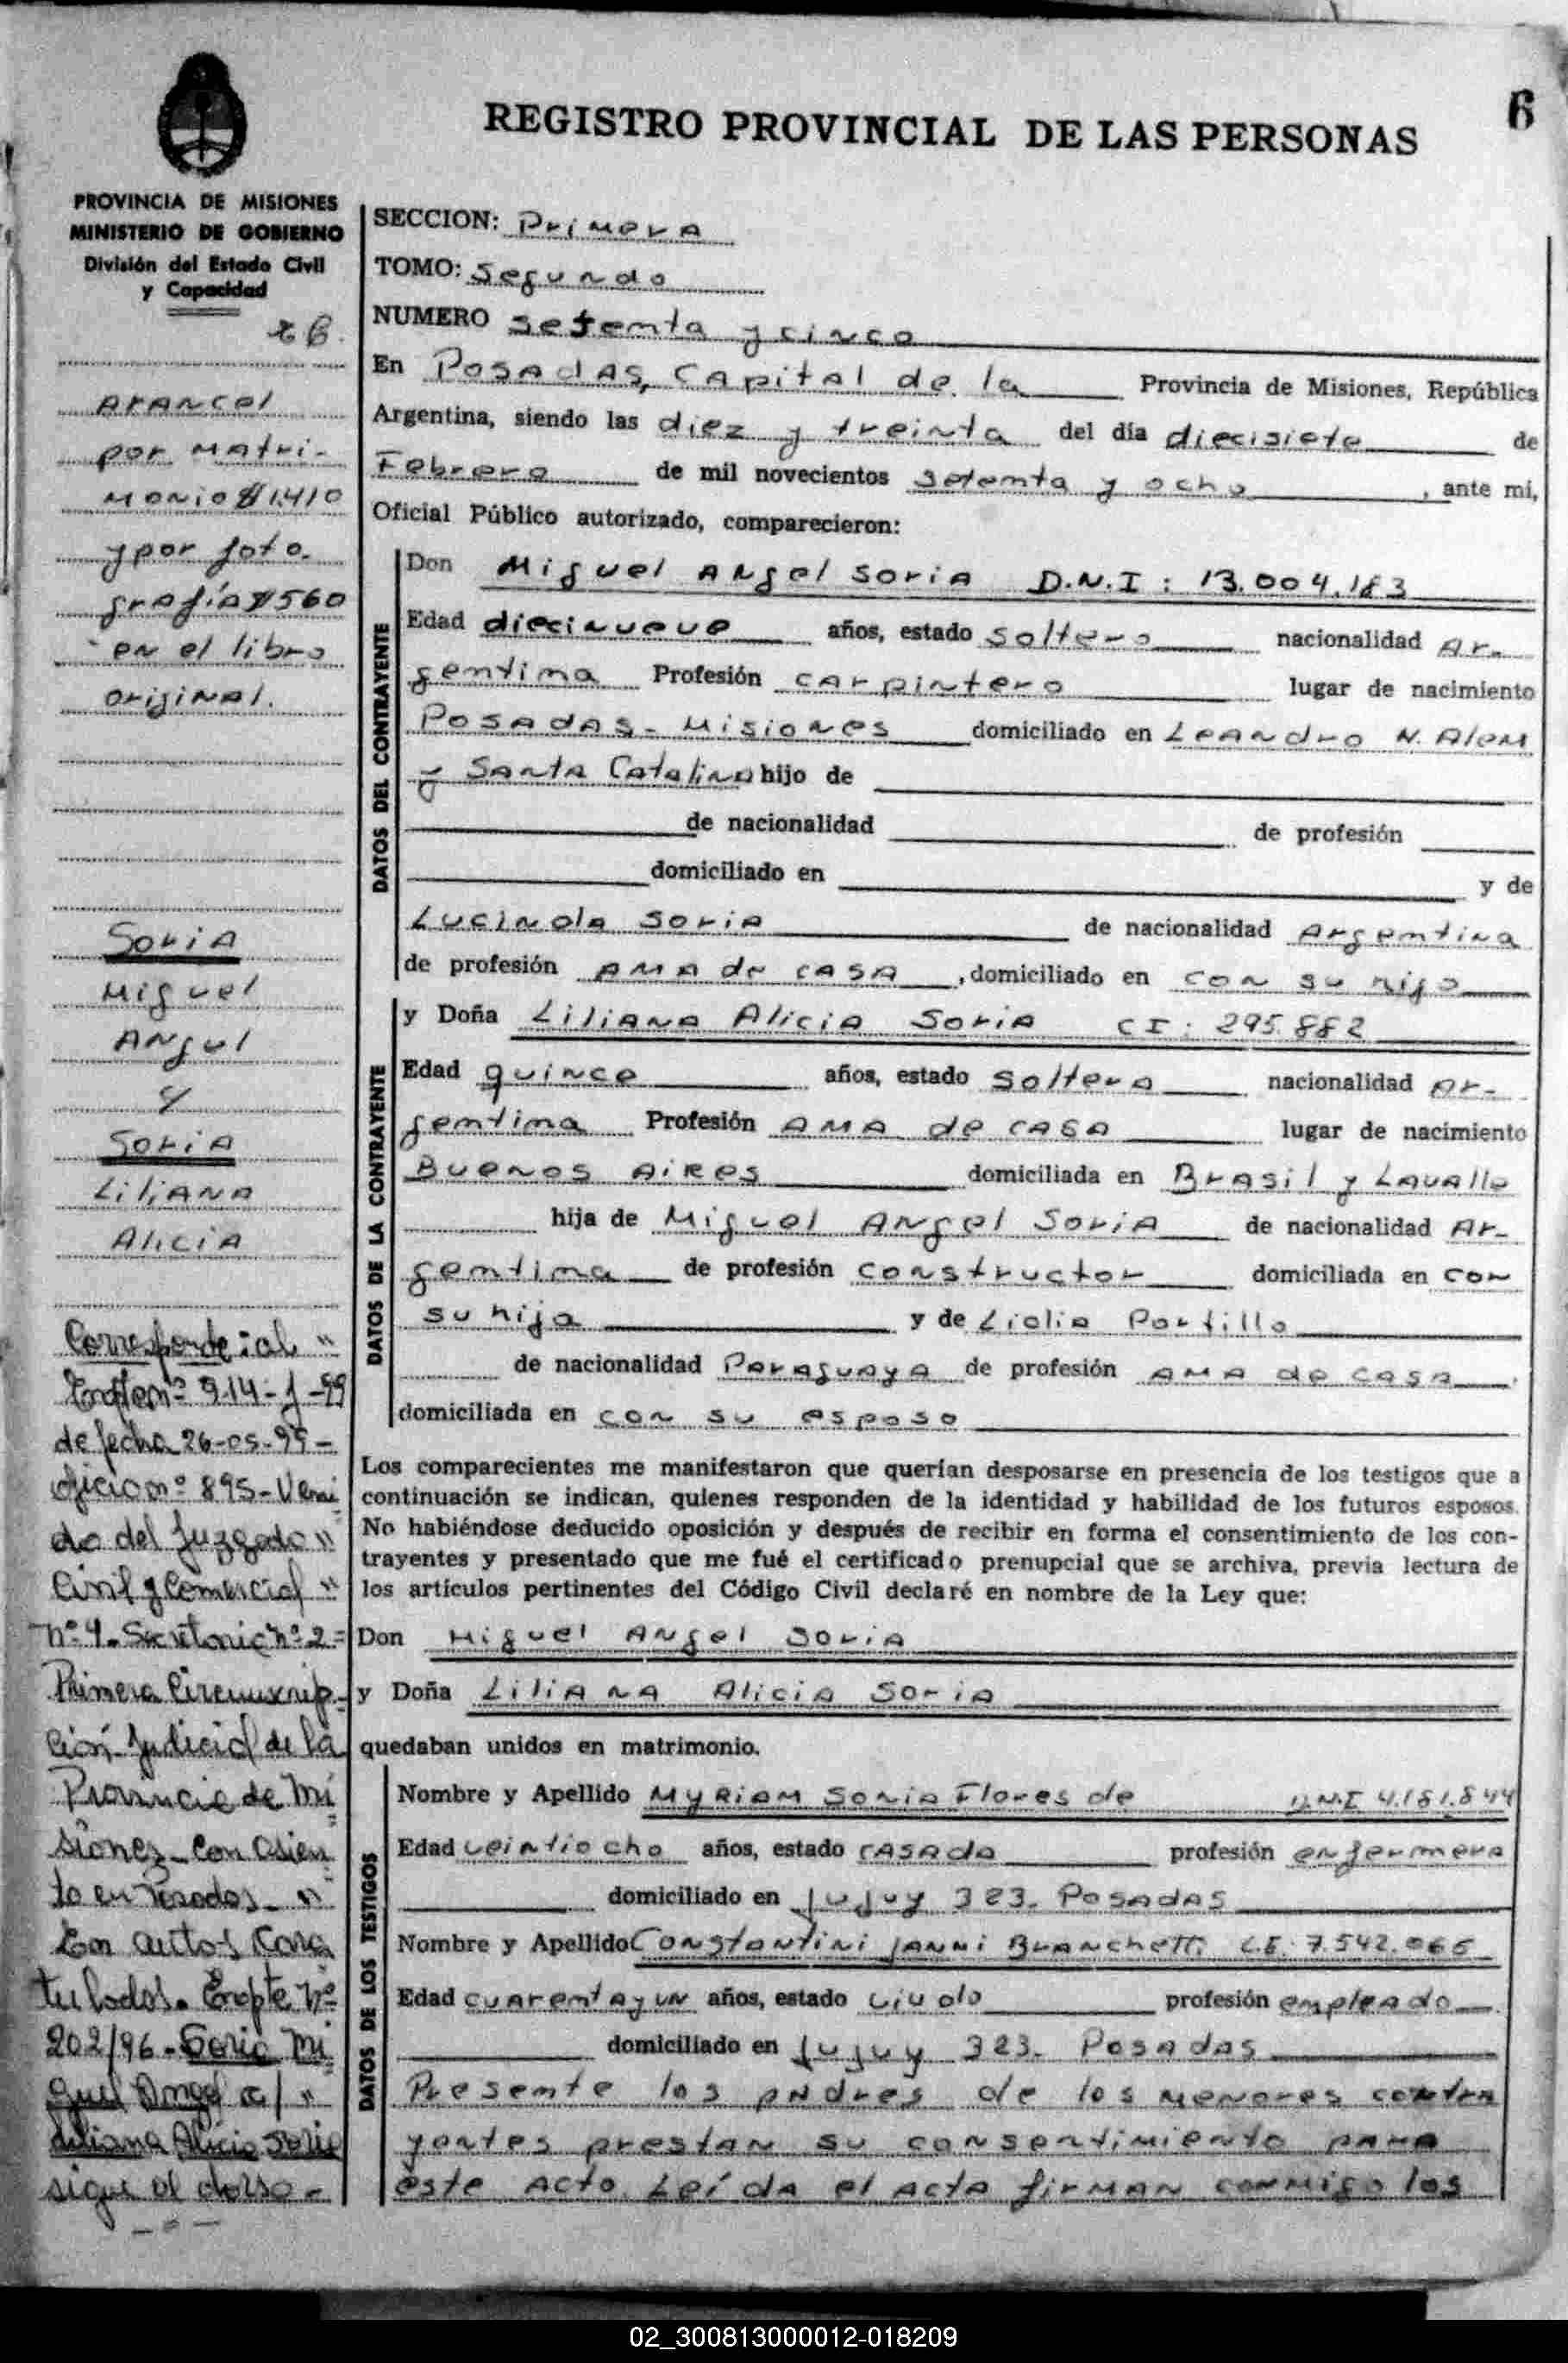 REGISTRO PROVINCIAL DE LAS PERSONAS
6
PROVINCIA DE MISIONES
MINISTERIO DE GOBIERNO
División del Estado Civil
y Capacidad
arancel
por matri-
monio $ 1.410
y por foto.
grafía $ 560
en el libro
original.
SORIA
Miguel
Angel
y
SORIA
Liliana
Alicia
Corresponde: al "
Expte nº 914-J-99
de fecha 26-05-99-
oficio nº 895-Veni
do del Juzgado "
Civil y Comercial "
nº 4. Secretaria nº 2=
Primera Circunscrip-
ción Judicial de la
Provincia de Mi
siones- con asien
to en Posadas- "
En autos Cara
tulados. Expte nº
202/96-Soria Mi
guel Angel c/ "
Liliana Alicia Soria
sigue al dorso-
SECCION: Primera
TOMO: Segundo
NUMERO setenta y cinco
En Posadas, Capital de la Provincia de Misiones, República
Argentina, siendo las diez y treinta del día diecisiete de
Febrero de mil novecientos setenta y ocho, ante mi,
Oficial Público autorizado, comparecieron:
DATOS DEL CONTRAYENTE
Don Miguel Angel Soria D.N.I: 13.004.183
Edad diecinueve años, estado soltero nacionalidad Ar-
gentina Profesión carpintero lugar de nacimiento
Posadas- Misiones domiciliado en Leandro N. Alem
y Santa Catalina hijo de
de nacionalidad de profesión
domiciliado en y de
Lucinda Soria de nacionalidad Argentina
de profesión ama de casa, domiciliado en con su hijo
DATOS DE LA CONTRAYENTE
y Doña Liliana Alicia Soria CI: 295.882
Edad quince años, estado soltera nacionalidad Ar-
gentina Profesión ama de casa lugar de nacimiento
Buenos Aires domiciliada en Brasil y Lavalle
hija de Miguel Angel Soria de nacionalidad Ar-
gentina de profesión constructor domiciliada en con
su hija y de Lidia Portillo
de nacionalidad Paraguaya de profesión ama de casa.
domiciliada en con su esposo
Los comparecientes me manifestaron que querían desposarse en presencia de los testigos que a
continuación se indican, quienes responden de la identidad y habilidad de los futuros esposos.
No habiéndose deducido oposición y después de recibir en forma el consentimiento de los con-
trayentes y presentado que me fué el certificado prenupcial que se archiva, previa lectura de
los artículos pertinentes del Código Civil declaré en nombre de la Ley que:
Don Miguel Angel Soria
y Doña Liliana Alicia Soria
quedaban unidos en matrimonio.
DATOS DE LOS TESTIGOS
Nombre y Apellido Myriam Sonia Flores de D.N.I 4.181.844
Edad veintiocho años, estado casada profesión enfermera
domiciliado en Jujuy 323. Posadas
Nombre y Apellido Constantini Janni Branchetti L.E: 7.542.066
Edad cuarenta y un años, estado viudo profesión empleado
domiciliado en Jujuy 323. Posadas
Presente los padres de los menores contra
yentes prestan su consentimiento para
este acto. Leída el acta firman conmigo los
02_300813000012-018209